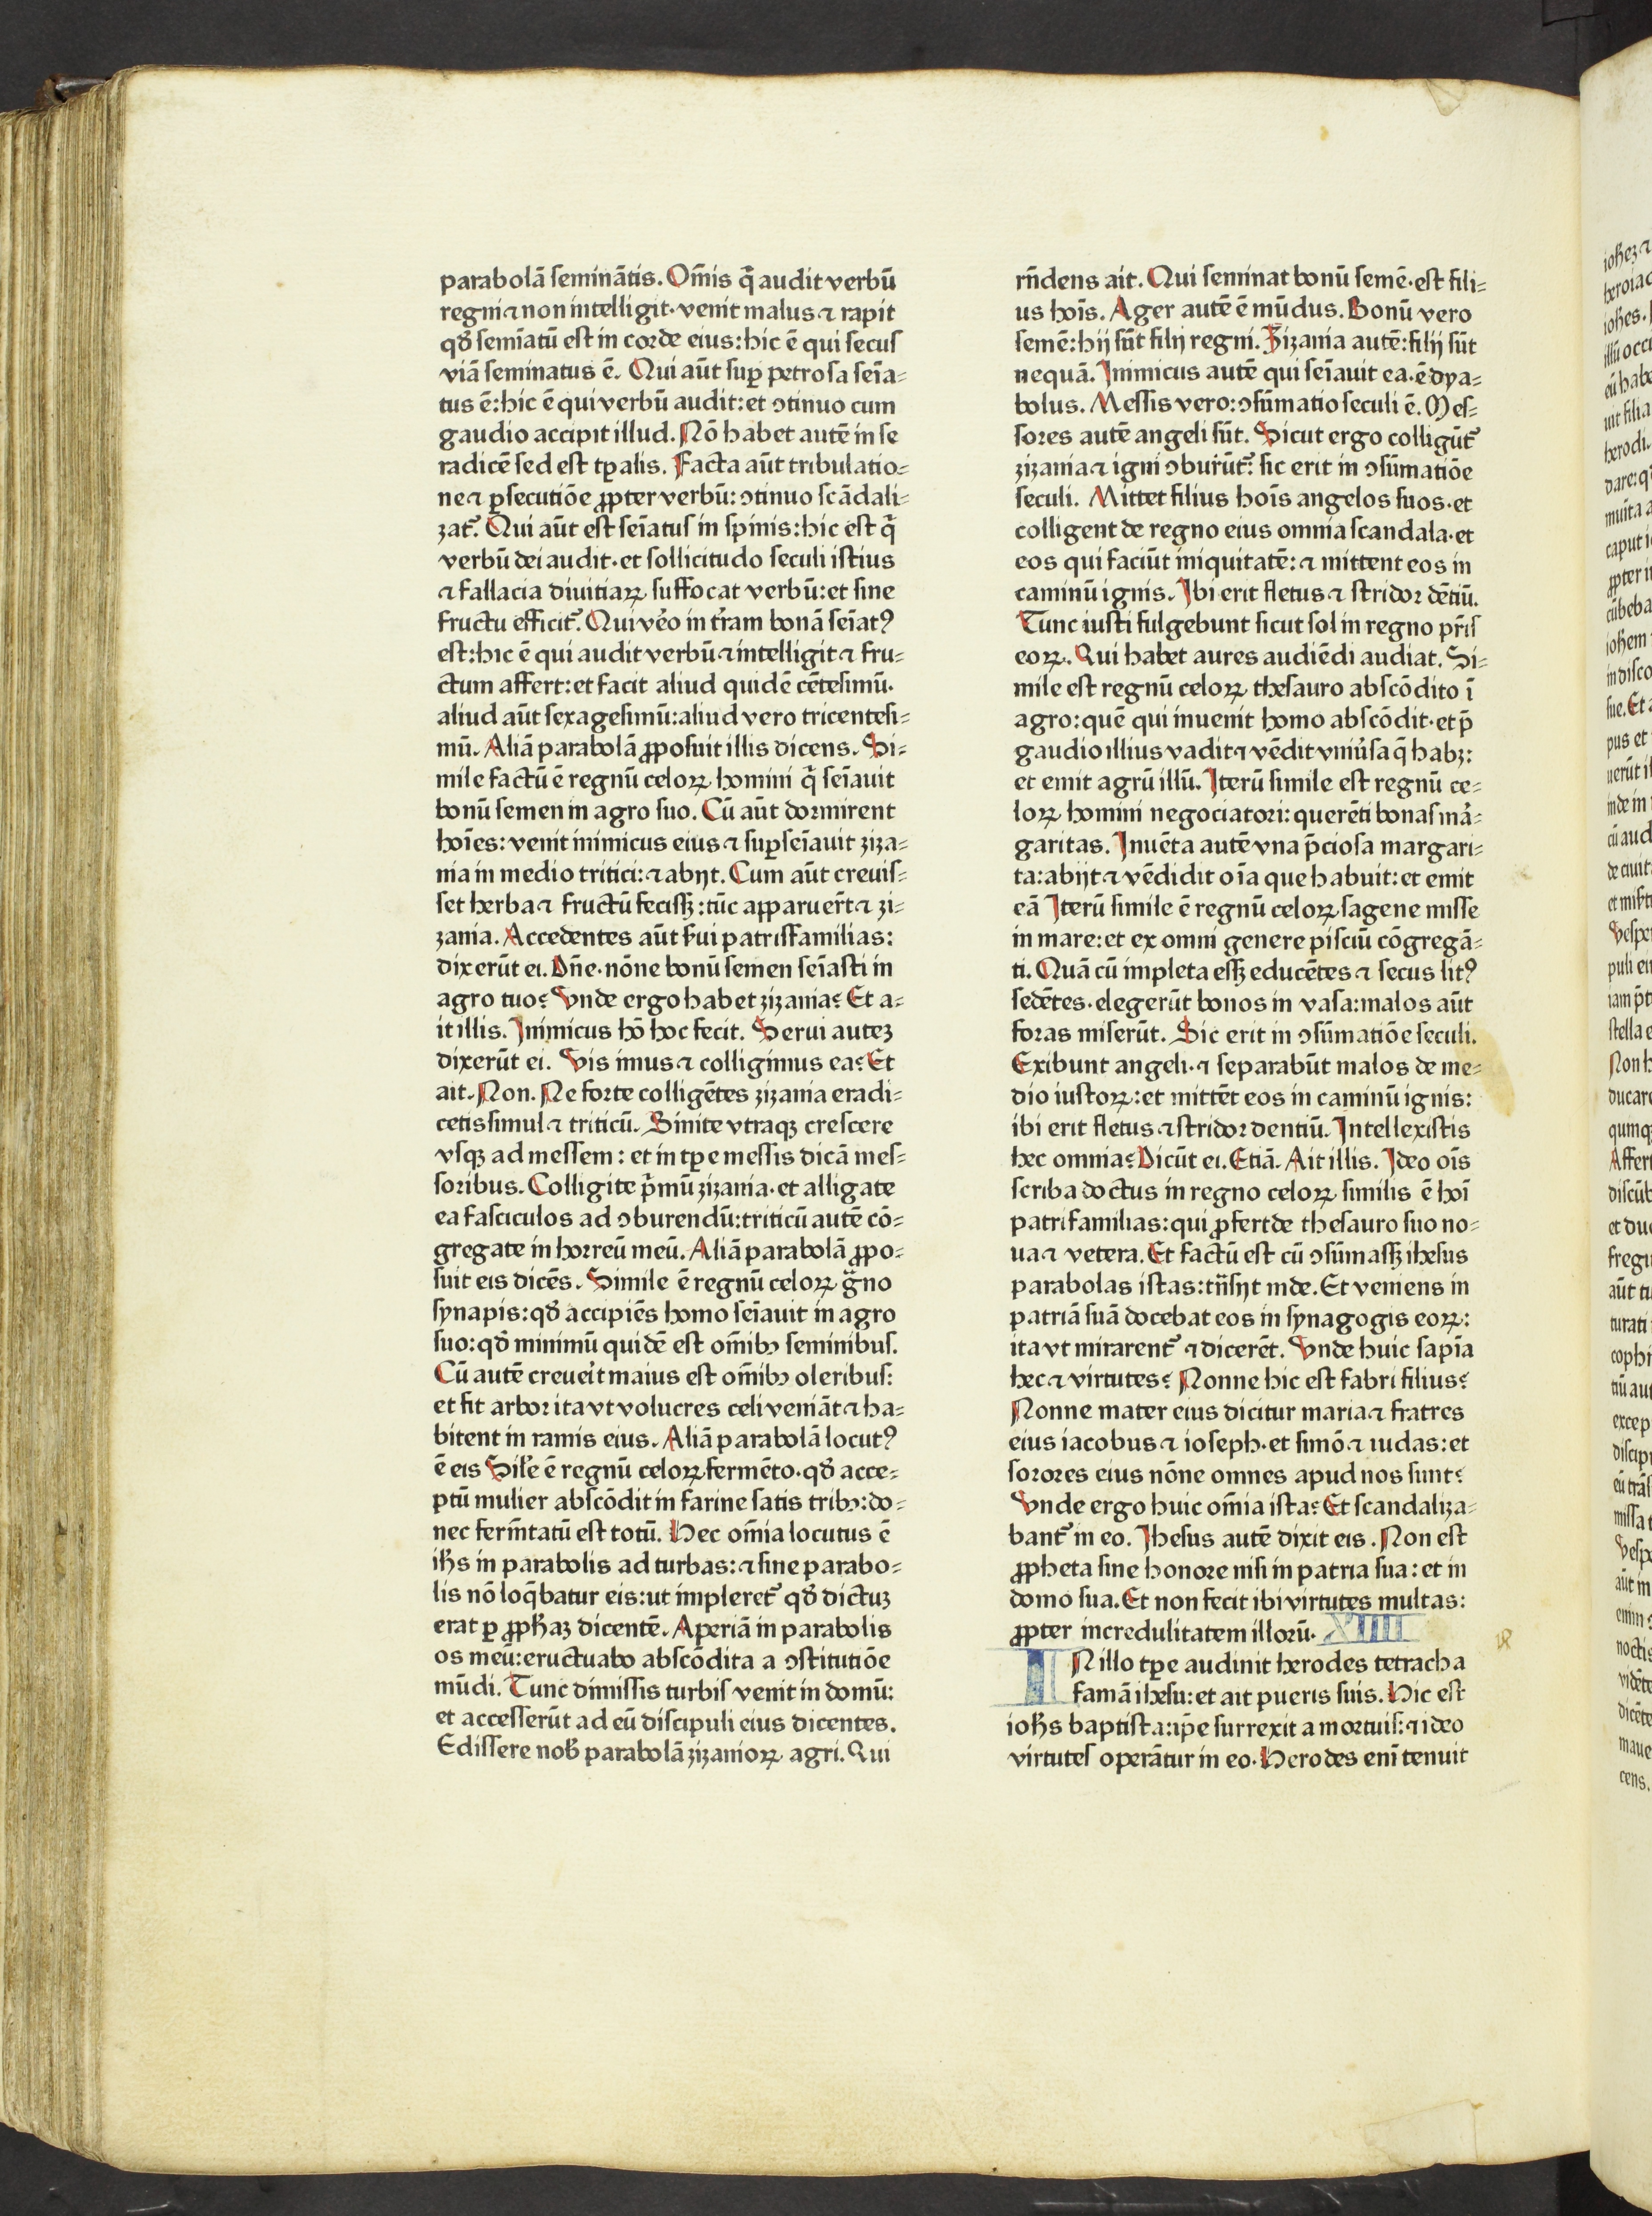 parabolā seminātis. Om̄is q̄ audit verbū
regni ⁊ non intelligit· venit malus ⁊ rapit
qđ semīatū est in corde eius: hic ē qui secus
viā seminatus ē. Qui aūt suꝑ petrosa seīa⸗
tus ē: hic ē qui verbū audit: et ↄtinuo cum
gaudio accipit illud. Nō habet autē in se
radicē sed est tꝑalis. Facta aūt tribulatio⸗
ne ⁊ ꝑsecutiōe ꝓpter verbū: ↄtinuo scādali⸗
zat᷑. Qui aūt est seīatus in spinis: hic est q̄
verbū dei audit· et sollicitudo seculi istius
⁊ fallacia diuitiaꝝ suffocat verbū: et sine
fructu efficit᷑. Qui ve᷑o in tr̄am bonā seīatꝰ
est: hic ē qui audit verbū ⁊ intelligit ⁊ fru⸗
ctum affert: et facit aliud quidē cētesimū·
aliud aūt sexagesimū: aliud vero tricentesi⸗
mū. Aliā parabolā ꝓposuit illis dicens. Si⸗
mile factū ē regnū celoꝝ homini q̄ seīauit
bonū semen in agro suo. Cū aūt dormirent
hoīes: venit inimicus eius ⁊ suꝑseīauit ziza⸗
nia in medio tritici: ⁊ abijt. Cum aūt creuis⸗
set herba ⁊ fructū fecissꝫ: tūc apparuer̄t ⁊ zi⸗
zania. Accedentes aūt s̓ui patrisfamilias:
dixerūt ei. Dn̄e· nōne bonū semen seīasti in
agro tuo? Vnde ergo habet zizania? Et a⸗
it illis. Inimicus hō hoc fecit. Serui auteꝫ
dixerūt ei. Vis imus ⁊ colligimus ea? Et
ait. Non. Ne forte colligētes zizania eradi⸗
cetis simul ⁊ triticū. Sinite vtraqꝫ crescere
vsqꝫ ad messem: et in tꝑe messis dicā mes⸗
soribus. Colligite p̄mū zizania· et alligate
ea fasciculos ad ↄburendū: triticū autē cō⸗
gregate in horreū meū. Aliā parabolā ꝓpo⸗
suit eis dicēs. Simile ē regnū celoꝝ g̃no
synapis: qđ accipiēs homo seīauit in agro
suo: qđ minimū quidē est om̄ibꝰ seminibus.
Cū autē creue᷑it maius est om̄ibꝰ oleribus:
et fit arbor ita vt volucres celi veniāt ⁊ ha⸗
bitent in ramis eius. Aliā parabolā locutꝰ
ē eis Sil̓e ē regnū celoꝝ fermēto· qđ acce⸗
ptū mulier abscōdit in farine satis tribꝰ: do⸗
nec ferm̄tatū est totū. Hec om̄ia locutus ē
ih̄s in parabolis ad turbas: ⁊ sine parabo⸗
lis nō loq̄batur eis: ut impleret᷑ qđ dictuꝫ
erat ꝑ ꝓph̄aꝫ dicentē. Aperiā in parabolis
os meū: eructuabo abscōdita a ↄstitutiōe
mūdi. Tunc dimissis turbis venit in domū:
et accesserūt ad eū discipuli eius dicentes.
Edissere nob̄ parabolā zizanioꝝ agri. Qui
rn̄dens ait. Qui seminat bonū semē· est fili⸗
us hoīs. Ager autē ē mūdus. Bonū vero
semē: hij sūt filij regni. Zizania autē: filij sūt
nequā. Inimicus autē qui seīauit ea· ē dya⸗
bolus. Messis vero: ↄsūmatio seculi ē. Mes⸗
sores autē angeli sūt. Sicut ergo colligūt᷑
zizania ⁊ igni ↄburūt᷑: sic erit in ↄsūmatiōe
seculi. Mittet filius hoīs angelos suos· et
colligent de regno eius omnia scandala· et
eos qui faciūt iniquitatē: ⁊ mittent eos in
caminū ignis. Ibi erit fletus ⁊ stridor dētiū.
Tunc iusti fulgebunt sicut sol in regno pr̄is
eoꝝ. Qui habet aures audiēdi audiat. Si⸗
mile est regnū celoꝝ thesauro abscōdito ī
agro: quē qui inuenit homo abscōdit· et p̄
gaudio illius vadit ⁊ vēdit vniu᷑sa q̄ habꝫ:
et emit agrū illū. Iterū simile est regnū ce⸗
loꝝ homini negociatori: querēti bonas ma᷑⸗
garitas. Inuēta autē vna p̄ciosa margari⸗
ta: abijt ⁊ vēdidit oīa que habuit: et emit
eā Iterū simile ē regnū celoꝝ sagene misse
in mare: et ex omni genere pisciū cōgregā⸗
ti. Quā cū impleta essꝫ educētes ⁊ secus litꝰ
sedētes· elegerūt bonos in vasa: malos aūt
foras miserūt. Sic erit in ↄsūmatiōe seculi.
Exibunt angeli· ⁊ separabūt malos de me⸗
dio iustoꝝ: et mittēt eos in caminū ignis:
ibi erit fletus ⁊ stridor dentiū. Intellexistis
hec omnia? Dicūt ei. Etiā. Ait illis. Ideo oīs
scriba doctus in regno celoꝝ similis ē hoī
patrifamilias: qui ꝓfert de thesauro suo no⸗
ua ⁊ vetera. Et factū est cū ↄsūmassꝫ ihesus
parabolas istas: tn̄sijt inde. Et veniens in
patriā suā docebat eos in synagogis eoꝝ:
ita vt mirarent᷑ ⁊ dicerēt. Vnde huic sapīa
hec ⁊ virtutes? Nonne hic est fabri filius?
Nonne mater eius dicitur maria ⁊ fratres
eius iacobus ⁊ ioseph· et simō ⁊ iudas: et
sorores eius nōne omnes apud nos sunt?
Vnde ergo huic om̄ia ista? Et scandaliza⸗
bant᷑ in eo. Ihesus autē dixit eis. Non est
ꝓpheta sine honore nisi in patria sua: et in
domo sua. Et non fecit ibi virtutes multas:
ꝓpter incredulitatem illorū. XIIII
IN illo tꝑe audiuit herodes tetracha
famā ihesu: et ait pueris suis. Hic est
ioh̄s baptista: ip̄e surrexit a mortuis: ⁊ ideo
virtutes operātur in eo. Herodes enī tenuit